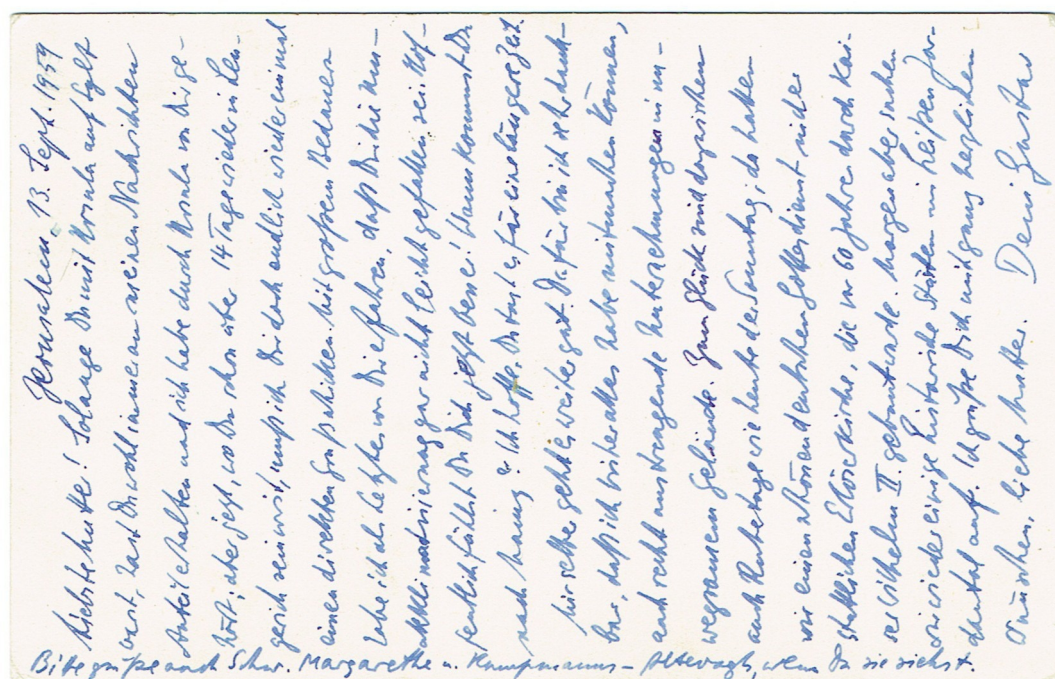 Jerusalem 13. Sept. 1959
Liebste Mutter! Solange Du mit Ursula auf Sylt
warst, hast Du wohl immer an meinen Nachrichten
Anteil erhalten und ich habe durch Ursula von Dir ge-
hört; aber jetzt, wo Du schon über 14 Tage wieder in Len-
gerich sein wirst, muß ich Dir doch endlich wieder einmal
einen direkten Gruß schicken. Mit großem Bedauern
habe ich als letztes von Dir erfahren, daß Dir die Um-
akklimatisierung gar nicht leicht gefallen sei. Hof-
fentlich fühlst Du Dich jetzt besser! Wann kommst Du
nach ? Ich hoffe, Du tust es für eine längere Zeit.
Mir selbst geht es weiter gut. Dafür bin ich sehr dank-
bar, daß ich bisher alles habe mitmachen können,
auch recht anstrengende Unternehmungen im un-
wegsamen Gelände. Zum Glück sind dazwischen
auch Ruhetage wie heute der Sonntag; da hatten
wir einen schönen deutschen Gottesdienst in der
stattlichen Erlöserkirche, die vor 60 Jahren durch Kai-
ser Wilhelm II. gebaut wurde. Morgen aber suchen
wir wieder einige historische Stätten im heißen Jor-
dantal auf. Ich grüße Dich mit ganz herzlichen
Wünschen, liebe Mutter. Dein Gustav
Bitte grüße auch Schw. Margarethe u. Kampmanns - Altevogt, wenn Du sie siehst.